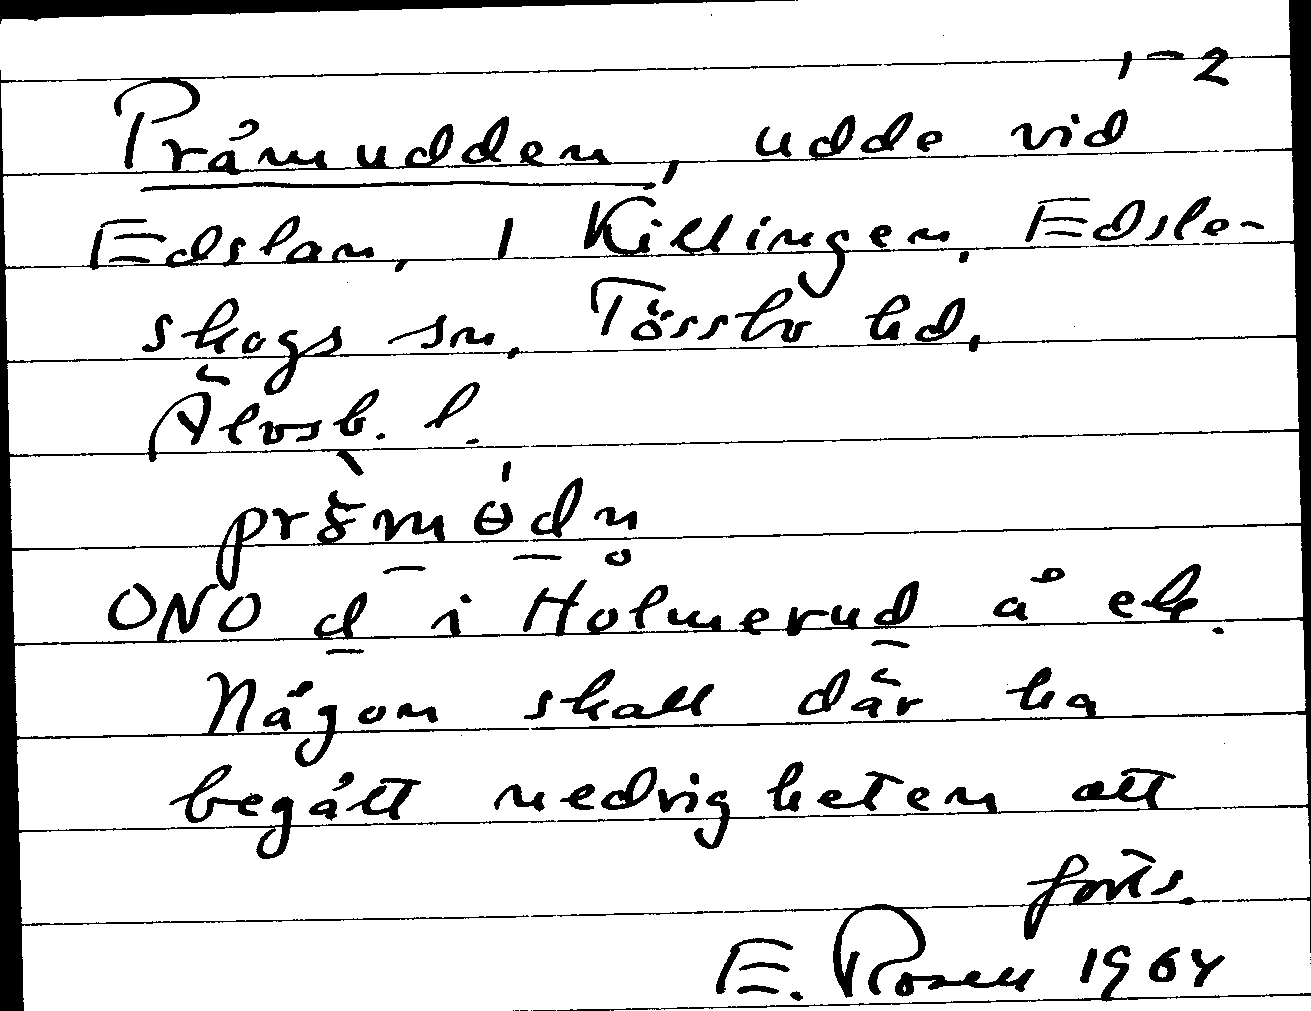 1-2
Pråmudden, udde vid
Edslan, 1 Killingen, Edsle-
skogs sn, Tössbo hd,
Älvsb. l.
ONO d i Holmerud å ek.
Någon skall där ha
begått nedrigheten att
forts.
E. Rosell 1964